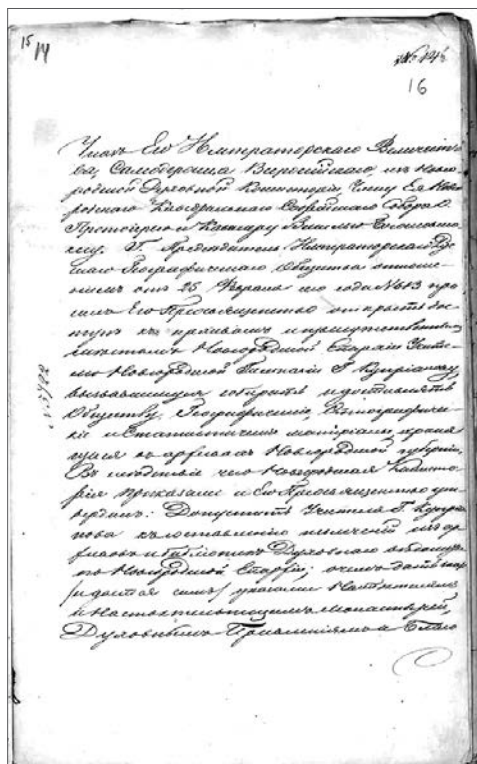 15 14
16
Указъ Его Императорскаго Величест
ва, Самодержца Всероссійскаго, изъ Новго
родской Духовной Консисторіи, Члену Ея, Новго
родскаго Каѳедральнаго Софійскаго Собора
Протоіерею и Ключарю
Г. Предсѣдатель Императорскаго Рус
скаго Географическаго Общества отноше
ніемъ отъ 25 Февраля сего года № 613 про
силъ Его Преосвященство открыть дос
тупъ къ архивамъ и
Новгородской Епархіи Учите
лю Новгородской Гимназіи Г. Купріянову,
вызвавшемуся собирать и доставлять
Обществу Географическіе, Этнографичес
кіе и Статистическіе матеріалы, храня
щіеся въ архивахъ Новгородской губерніи.
Въ слѣдствіе чего Новгородская Консисто
рія приказали и Его Преосвященство ут
вердилъ: Допустить Учителя Г. Купрія
нова къ составленію изъ ар
хивовъ и библіотекъ Духовнаго вѣдомства
по Новгородской Епархіи; о чемъ дать знать
указами Настоятелямъ
и Настоятельницамъ монастырей,
Духовнымъ Правленіямъ и Благо